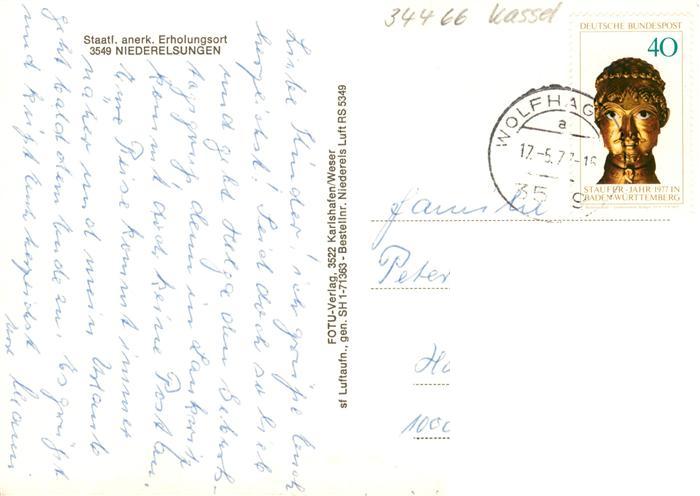 34466 Kassel
Staatl. anerk. Erholungsort
3549 NIEDERELSUNGEN
DEUTSCHE BUNDESPOST
40
STAUFER-JAHR 1977 IN
BADEN-WÜRTTEMBERG
WOLFHAG
a
17.-5.77-18
35 9
Liebe Kinder! ich grüße Euch
herzlichst! Seid doch so lieb
und gebt Helga den Geburts-
tagsgruß, denn in Lankwitz
kommt doch keine Post an.
Eure Reise kommt immer
näher und mein Urlaub
geht bald dem Ende zu. Es grüßt
und küßt Euch herzlichst
Eure Mami
FOTU-Verlag, 3522 Karlshafen/Weser
sf Luftaufn., gen. SH 1-71363 - Bestellnr. Niederels Luft RS 5349
Familie
Peter
Ho
1000